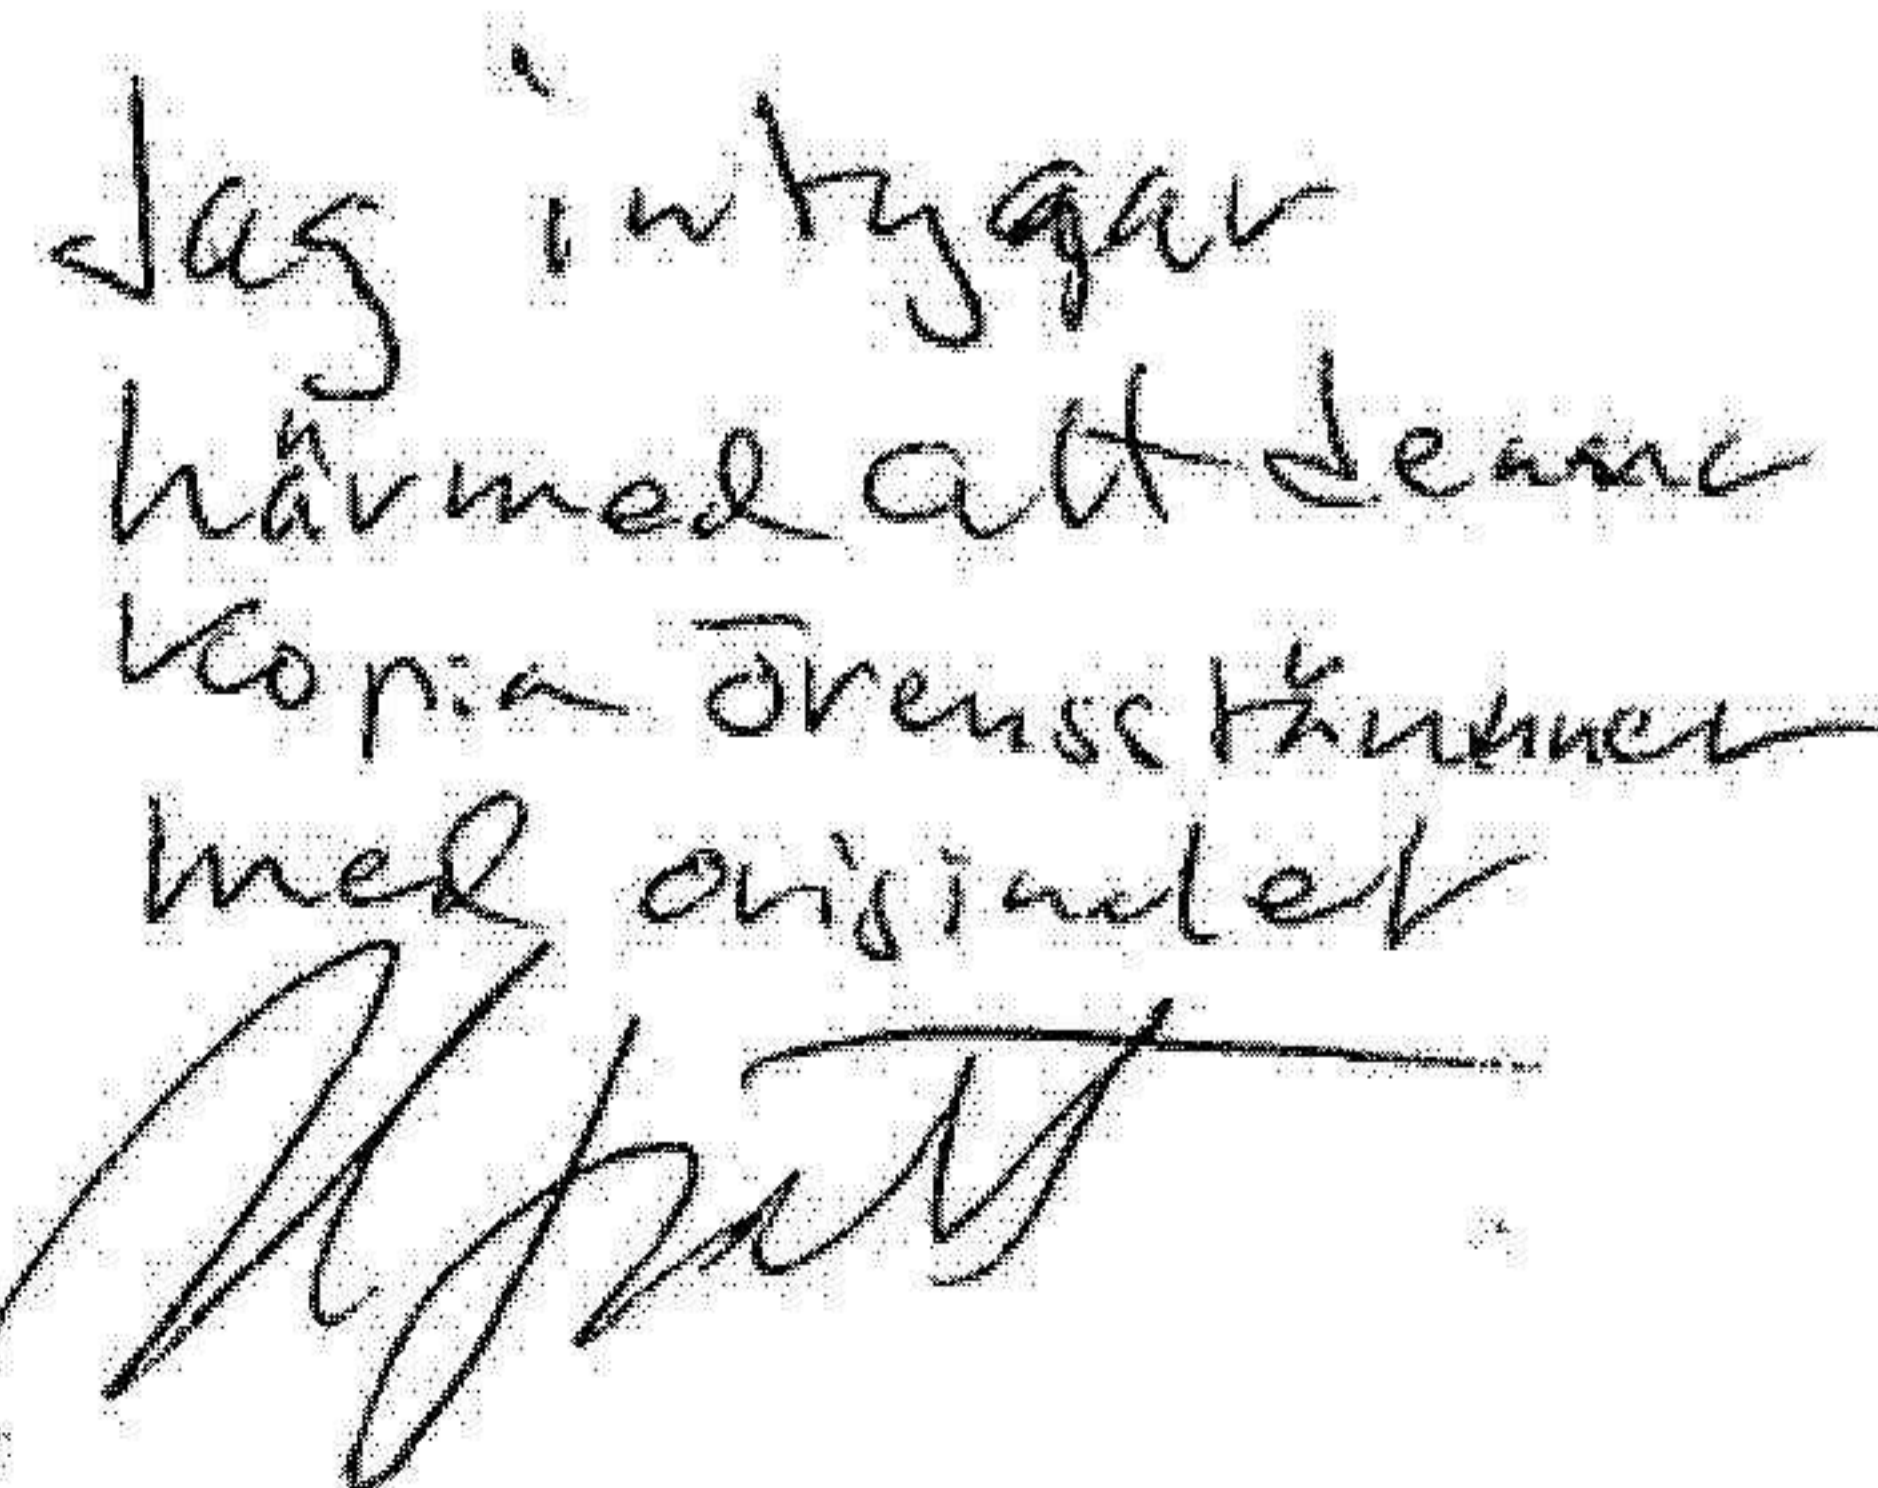 Jag intygar
härmed att denna
kopia överensstämmer
med originalet